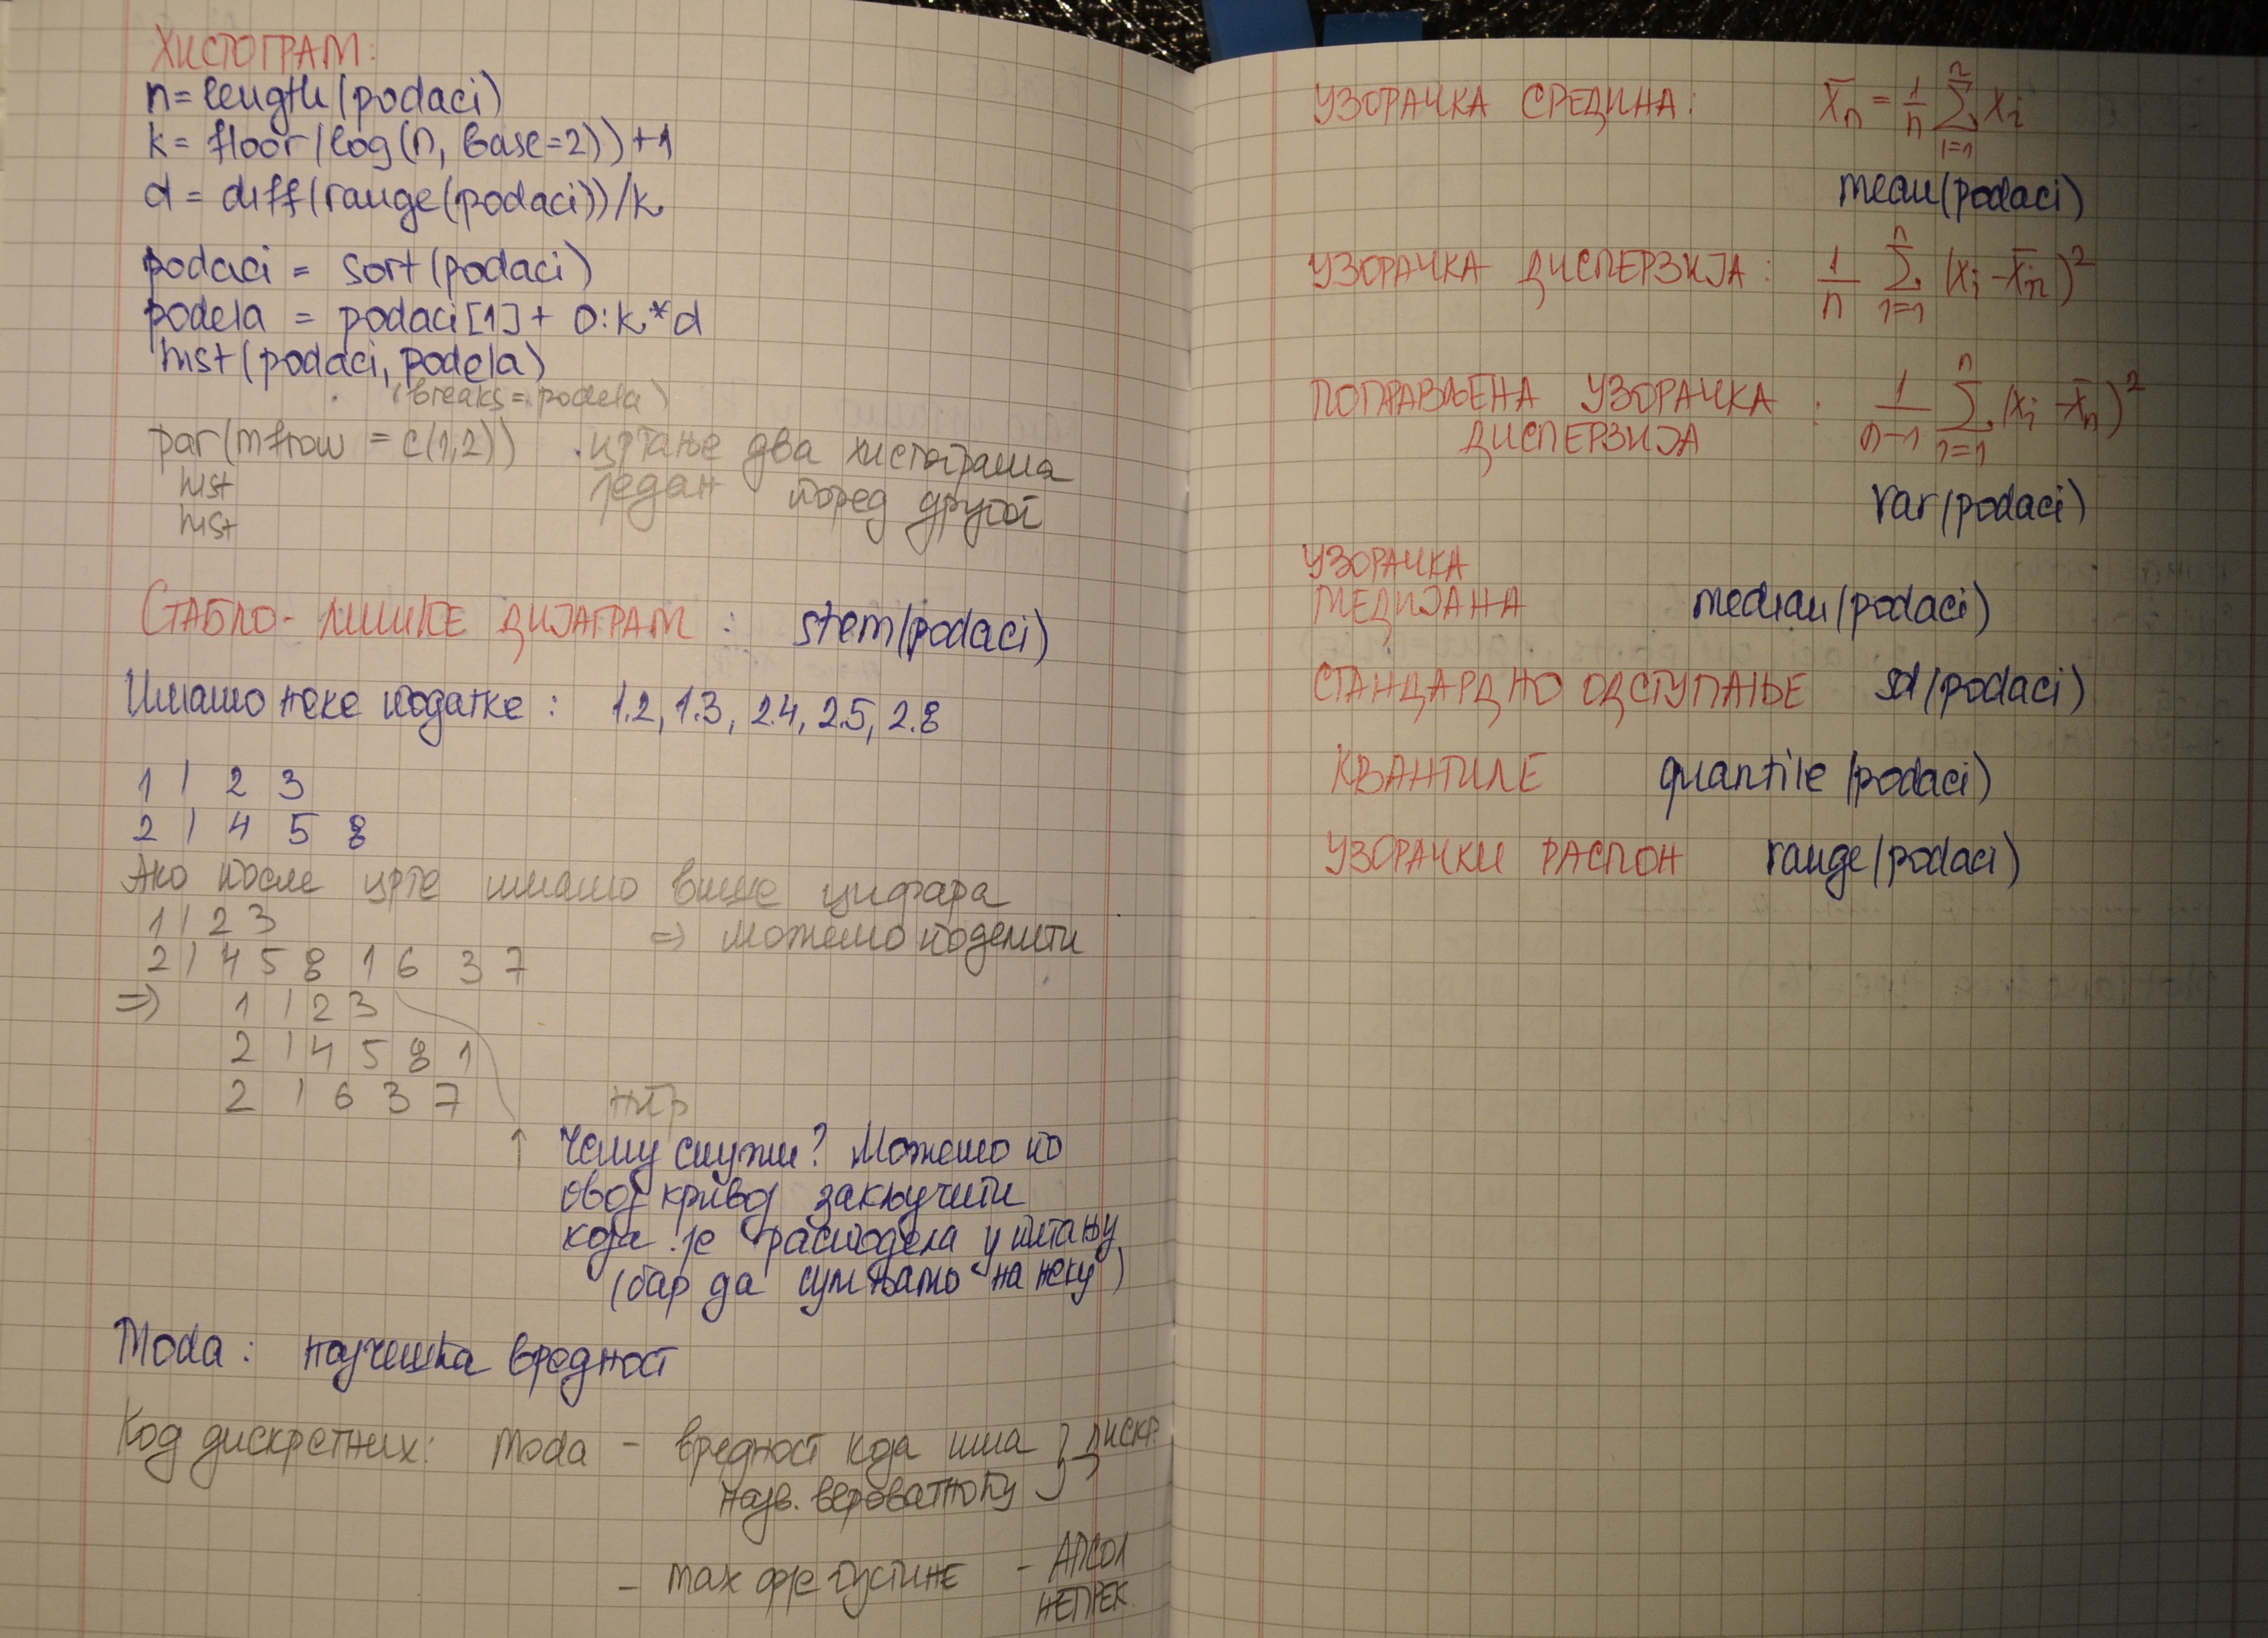 ХИСТОГРАМ:
n = length(podaci)
k = floor(log(n, base=2))+1
d = diff(range(podaci))/k
podaci = sort(podaci)
podela = podaci[1] + 0:k*d
hist(podaci, podela)
(breaks = podela)
par(mfrow = c(1,2)) цртање два хистограма
hist један поред другог
hist
СТАБЛО-ЛИШЋЕ ДИЈАГРАМ : stem(podaci)
Имамо неке податке : 1.2, 1.3, 2.4, 2.5, 2.8
1 | 2 3
2 | 4 5 8
Ако после црте имамо више цифара
1 | 2 3 => можемо поделити
2 | 4 5 8 1 6 3 7
=> 1 | 2 3
2 | 4 5 8 1
2 | 6 3 7
нпр
↑ Чему служи? Можемо по
овој кривој закључити
која је расподела у питању
(бар да сумњамо на неку)
Moda : најчешћа вредност
Код дискретних: Moda - вредност која има } ДИСКР.
најв. вероватноћу
- max фје густине - АПСОЛ
НЕПРЕК.
УЗОРАЧКА СРЕДИНА : x̄n = 1/n Σ_{i=1}^{n} xi
mean(podaci)
УЗОРАЧКА ДИСПЕРЗИЈА : 1/n Σ_{i=1}^{n} (xi - x̄n)²
ПОПРАВЉЕНА УЗОРАЧКА : 1/(n-1) Σ_{i=1}^{n} (xi - x̄n)²
ДИСПЕРЗИЈА
var(podaci)
УЗОРАЧКА
МЕДИЈАНА median(podaci)
СТАНДАРДНО ОДСТУПАЊЕ sd(podaci)
КВАНТИЛЕ quantile(podaci)
УЗОРАЧКИ РАСПОН range(podaci)